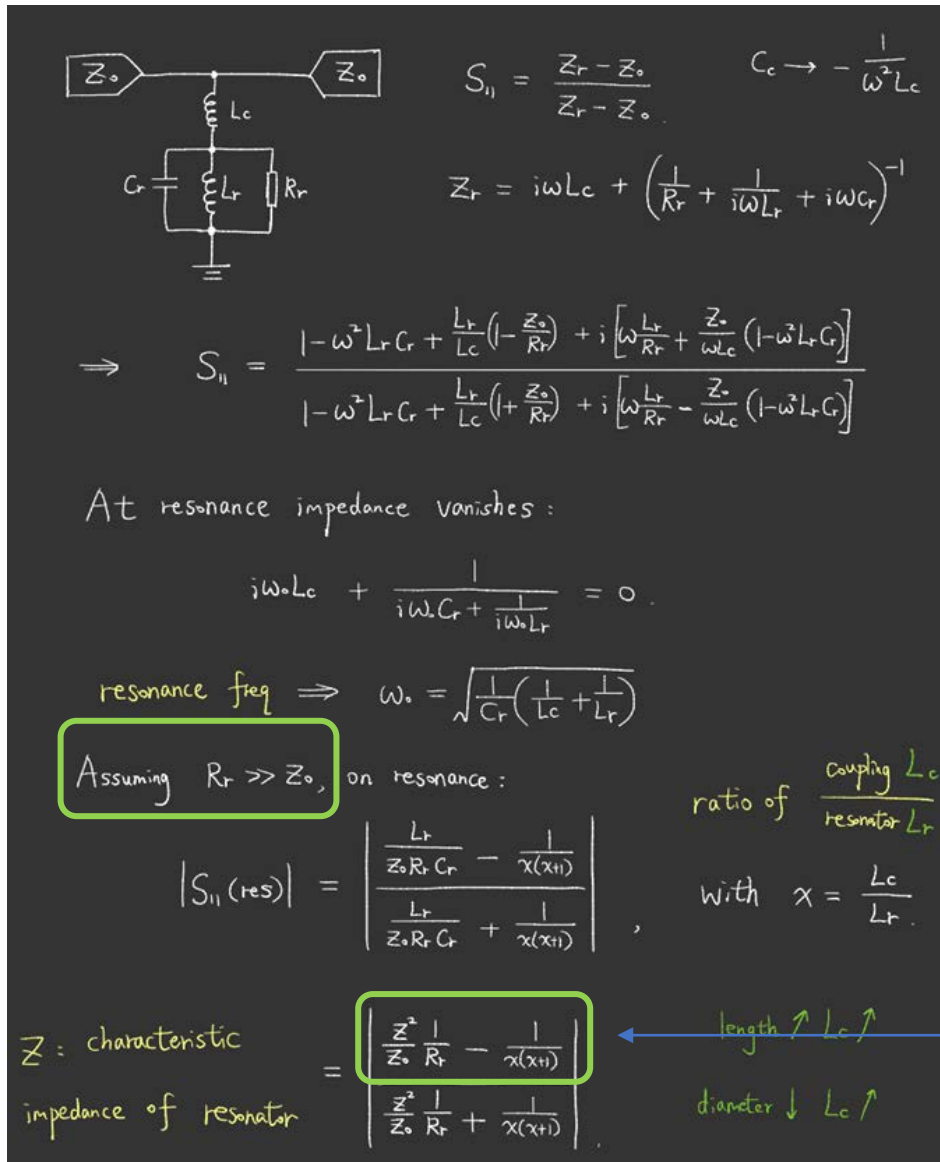 Z₀ Z₀
Lc
Cr Lr Rr
S₁₁ = (Zr - Z₀) / (Zr - Z₀)
Cc → - 1 / (ω² Lc)
Zr = iωLc + (1/Rr + 1/(iωLr) + iωCr)⁻¹
⇒ S₁₁ = (1-ω² Lr Cr + Lr/Lc (1 - Z₀/Rr) + i [ω Lr/Rr + Z₀/(ωLc) (1-ω² Lr Cr)]) / (1-ω² Lr Cr + Lr/Lc (1+ Z₀/Rr) + i [ω Lr/Rr - Z₀/(ωLc) (1-ω² Lr Cr)])
At resonance impedance vanishes :
iω₀Lc + 1 / (iω₀Cr + 1/(iω₀Lr)) = 0 .
resonance freq ⇒ ω₀ = √(1/Cr (1/Lc + 1/Lr))
Assuming Rr >> Z₀, on resonance :
ratio of coupling Lc / resonator Lr
|S₁₁ (res)| = | (Lr/(Z₀ Rr Cr) - 1/(x(x+1))) / (Lr/(Z₀ Rr Cr) + 1/(x(x+1))) | , with x = Lc / Lr .
Z : characteristic
impedance of resonator
= | (Z²/Z₀ 1/Rr - 1/(x(x+1))) / (Z²/Z₀ 1/Rr + 1/(x(x+1))) | .
length ↑ Lc ↑
diameter ↓ Lc ↑